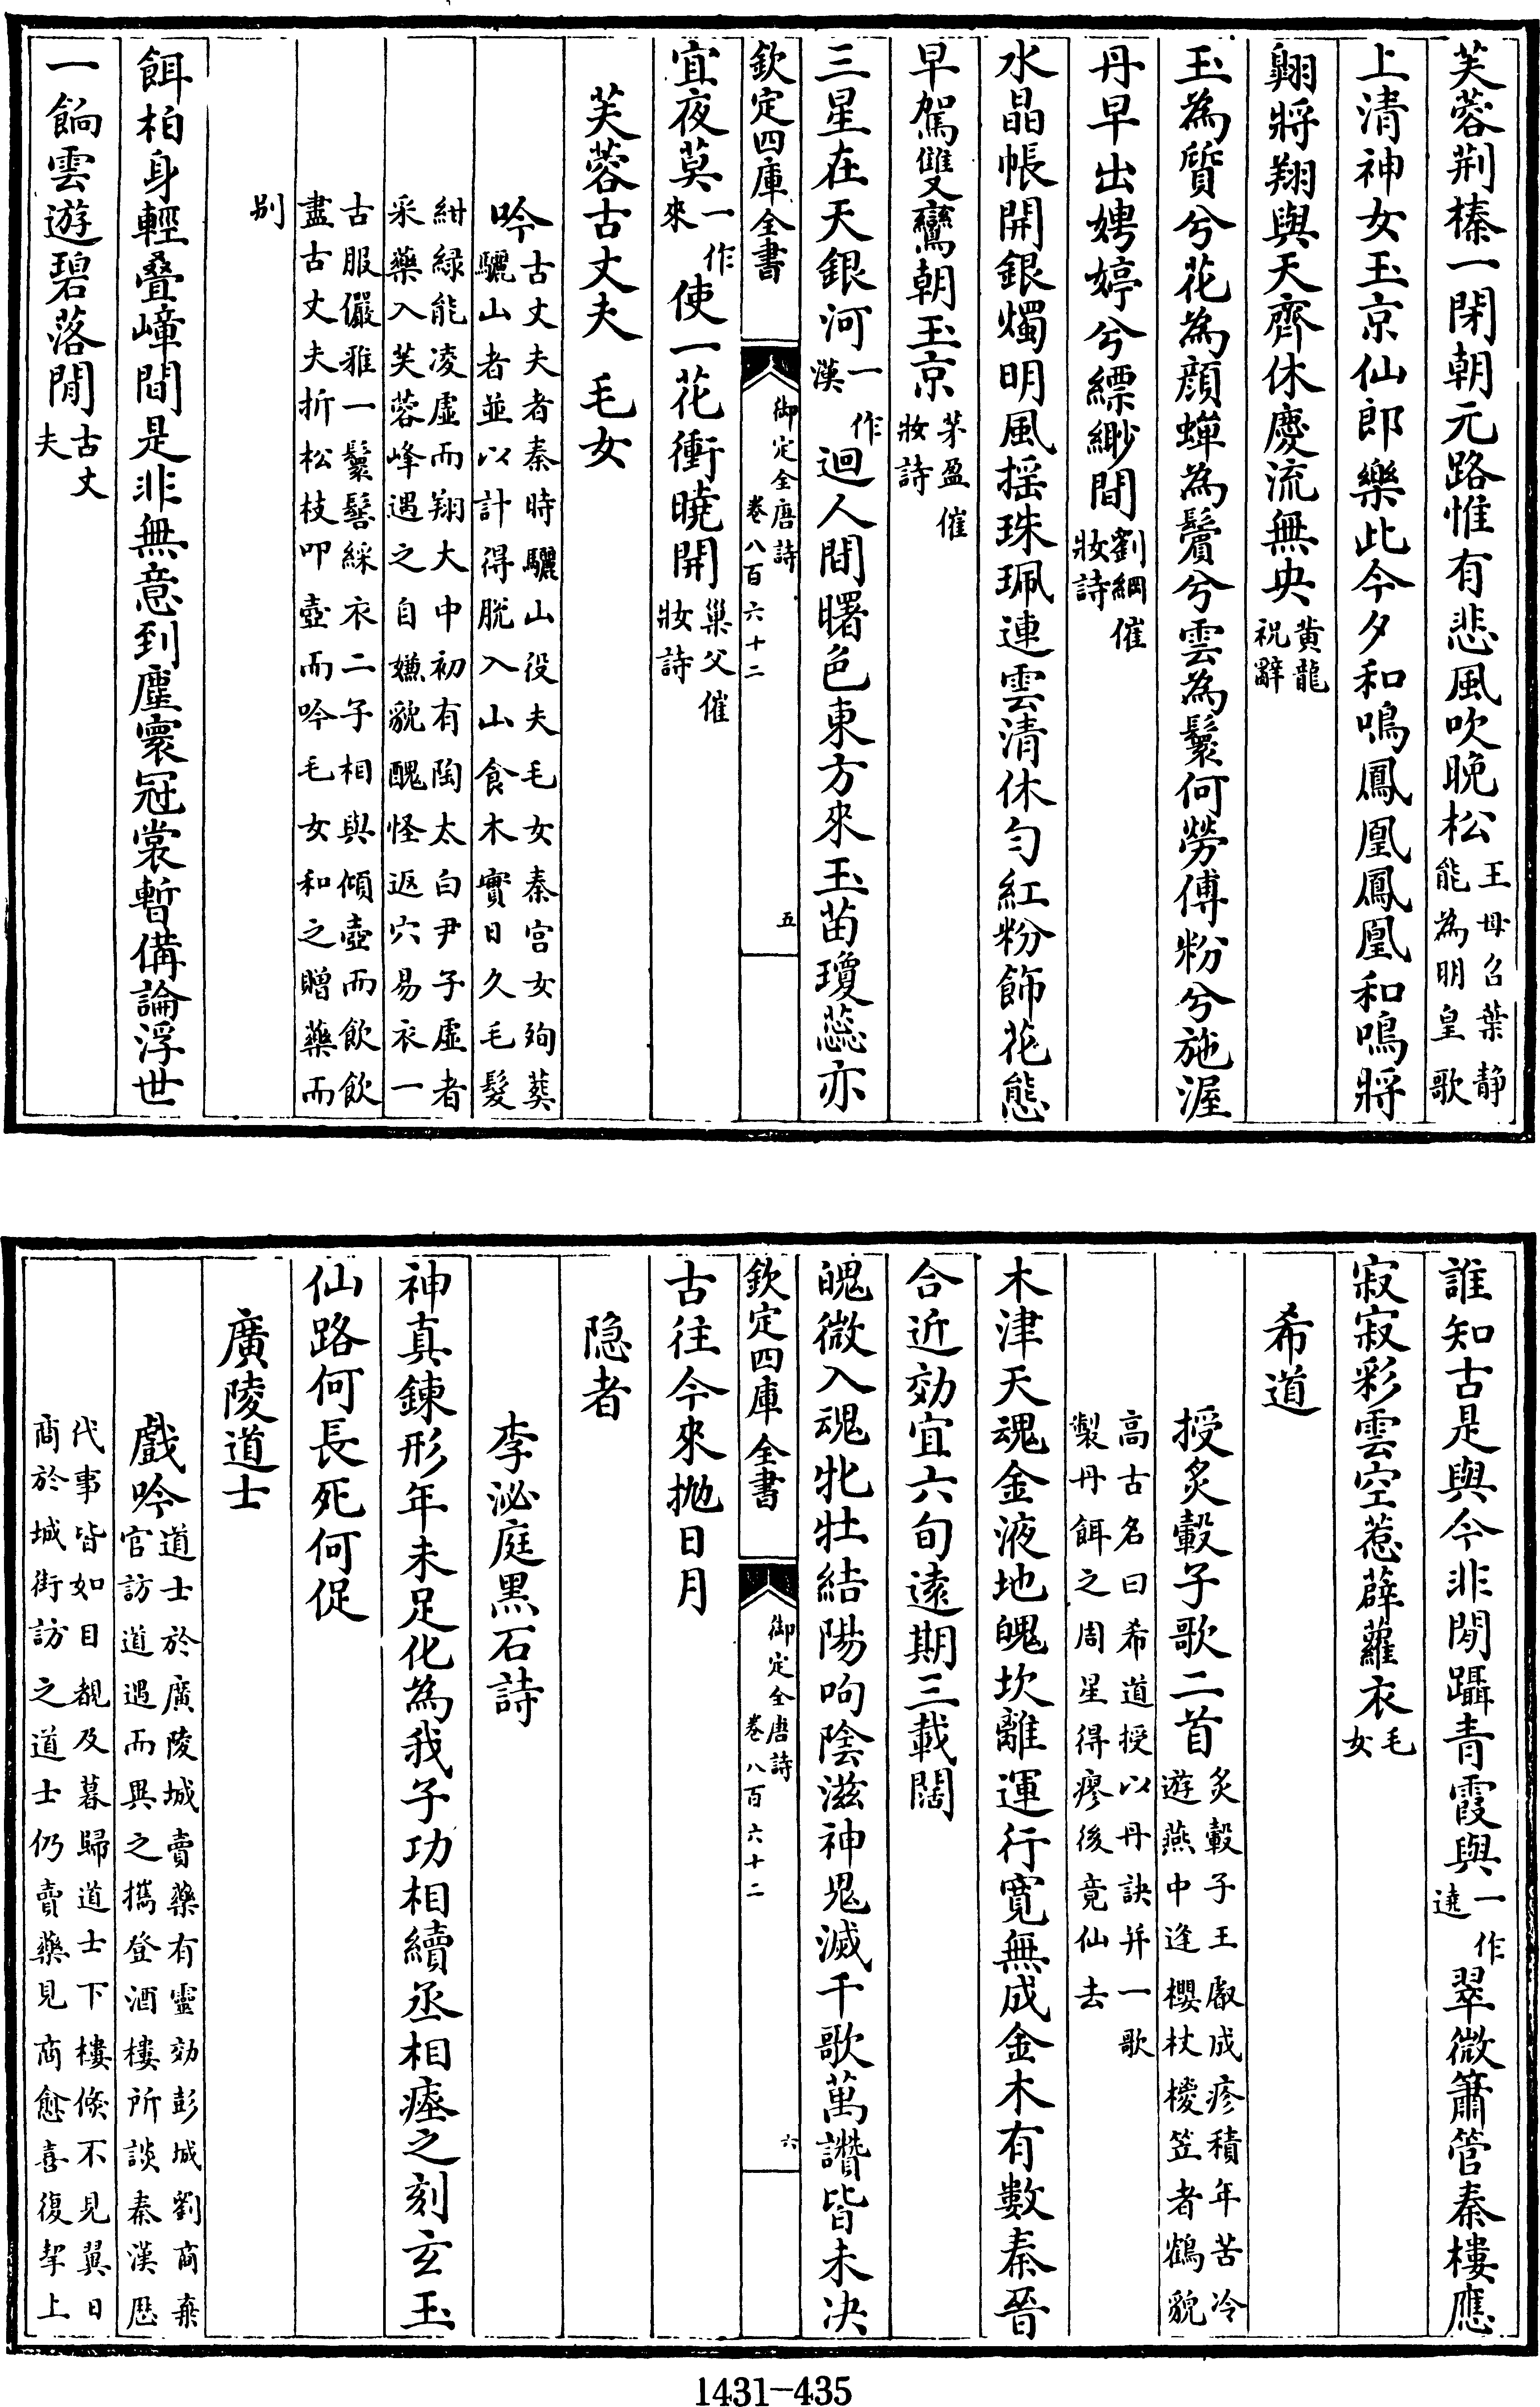 芙蓉荆榛一閉朝元路惟有悲風吹晩松王母召葉静能為明皇歌
上清神女玉京仙郎樂此今夕和鳴鳳凰鳳凰和鳴將
翺將翔與天齊休慶流無央黄龍祝辭
玉為質兮花為顔蟬為鬢兮雲為鬟何勞傅粉兮施渥
丹早出娉婷兮縹緲間劉綱催妝詩
水晶帳開銀燭明風揺珠珮連雲清休勻紅粉飾花態
早駕雙鸞朝玉京茅盈催妝詩
三星在天銀河一作漢迴人間曙色東方來玉苗瓊蕊亦
欽定四庫全書 御定全唐詩卷八百六十二 五
宜夜莫一作來使一花衝曉開巢父催妝詩
芙蓉古丈夫 毛女
吟古丈夫者秦時驪山役夫毛女秦宫女殉葬驪山者並以計得脱入山食木實日久毛髮
紺緑能凌虚而翔大中初有陶太白尹子虚者采藥入芙蓉峰遇之自嫌貌醜怪返穴易衣一
古服儼雅一鬟髻綵衣二子相與傾壺而飲飲盡古丈夫折松枝叩壺而吟毛女和之贈藥而
别
餌柏身輕叠嶂間是非無意到塵寰冠裳暫備論浮世
一餉雲遊碧落閒古丈夫
誰知古是與今非閒躡青霞與一作遶翠微簫管秦樓應
寂寂彩雲空惹薜蘿衣毛女
希道
授炙轂子歌二首炙轂子王叡成疹積年苦冷遊燕中逢櫻杖椶笠者鶴貌
高古名曰希道授以丹訣并一歌製丹餌之周星得瘳後竟仙去
木津天魂金液地魄坎離運行寛無成金木有數秦晉
合近効宜六旬遠期三載闊
魄微入魂牝牡結陽呴陰滋神鬼滅千歌萬讚皆未决
欽定四庫全書 御定全唐詩卷八百六十二 六
古往今來抛日月
隐者
李泌庭黒石詩
神真錬形年未足化為我子功相續丞相瘞之刻玄玉
仙路何長死何促
廣陵道士
戲吟道士於廣陵城賣藥有靈効彭城劉商棄官訪道遇而異之攜登酒樓所談秦漢歴
代事皆如目覩及暮歸道士下樓倐不見翼日商於城街訪之道士仍賣藥見商愈喜復挈上
1431-435